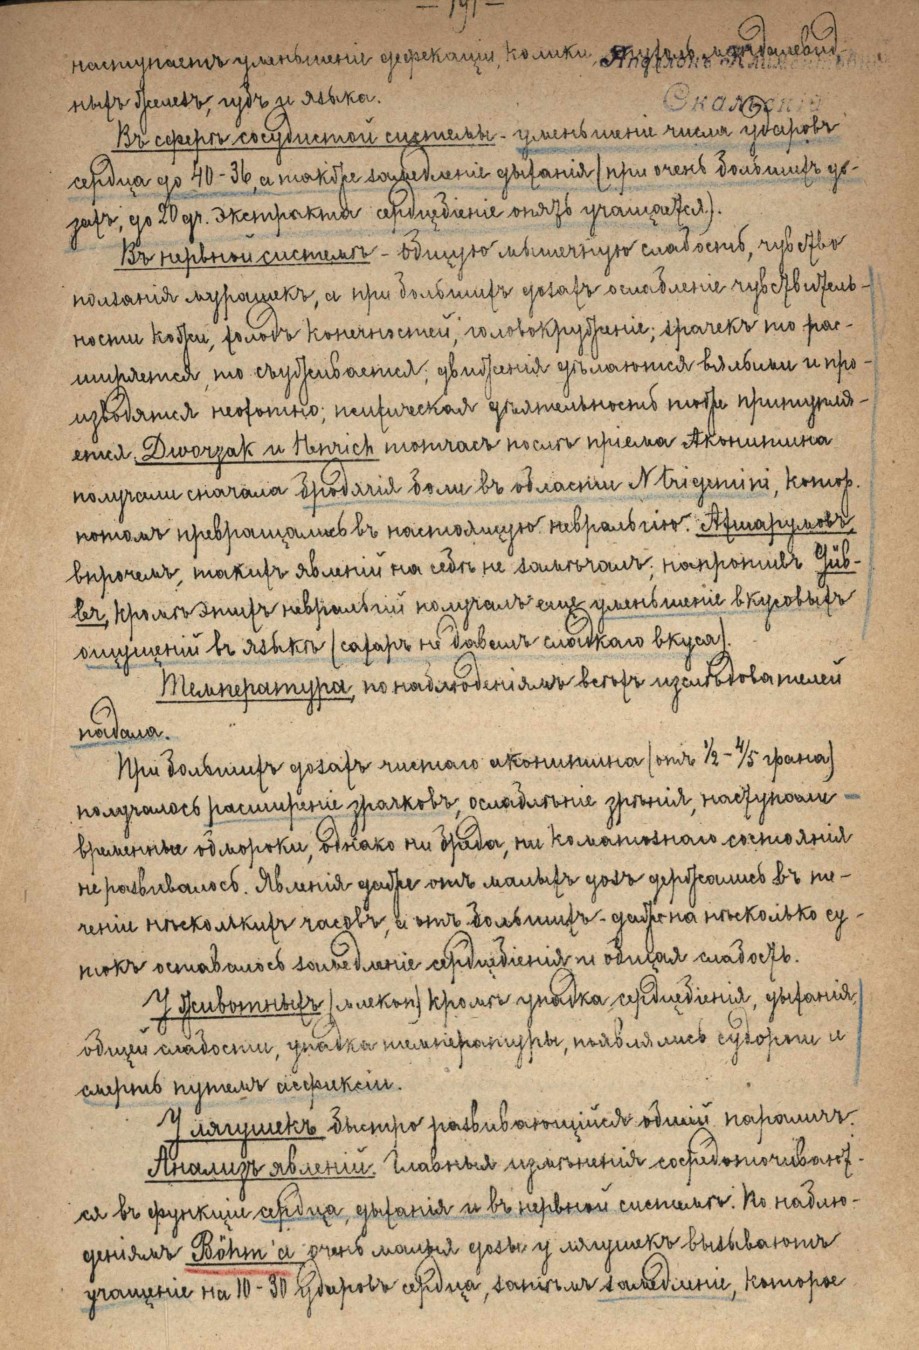 — 191 —
наступаетъ уменьшеніе дефекаціи, колики, миндалевид-
ныхъ железъ, губъ и языка.
Скальскій
Въ сферѣ сосудистой системы - уменьшеніе числа ударовъ
сердца до 40-36, а также замедленіе дыханія (при очень большихъ до-
захъ, до 20 гр. экстракта сердцебіеніе опять учащается).
Въ нервной системѣ - общую мышечную слабость, чувство
ползанія мурашекъ, а при большихъ дозахъ ослабленіе чувствитель-
ности кожи, холодъ конечностей, головокруженіе; зрачекъ то рас-
ширяется, то съуживается; движенія дѣлаются вялыми и про-
изводятся неохотно; психическая дѣятельность тоже притупля-
ется. Dworzak и Henrich тотчасъ послѣ пріема Аконитина
получали сначала бродячія боли въ области N trigemini, котор.
потомъ превращались въ настоящую невральгію. Ахшарумовъ,
впрочемъ, такихъ явленій на себѣ не замѣчалъ; напротивъ
кромѣ этихъ невральгій получалъ еще уменьшеніе вкусовыхъ
ощущеній въ языкѣ (сахаръ не давалъ сладкаго вкуса).
Температура, по наблюденіямъ всѣхъ изслѣдователей
падала.
При большихъ дозахъ чистаго аконитина (отъ 1/2 - 4/5 грана)
получалось расширеніе зрачковъ, ослабленіе зрѣнія, наступали
временные обмороки, однако ни бреда, ни коматознаго состоянія
не развивалось. Явленія даже отъ малыхъ дозъ держались въ те-
ченіе нѣсколькихъ часовъ, а отъ большихъ - даже на нѣсколько су-
токъ оставалось замедленіе сердцебіенія и общая слабость.
У животныхъ (млекоп.) кромѣ упадка сердцебіенія, дыханія,
общей слабости, упадка температуры, появлялись судороги и
смерть путемъ асфиксіи.
У лягушекъ быстро развивающійся общій параличъ.
Анализъ явленій. Главныя измѣненія сосредоточивают-
ся въ функціи сердца, дыханія и въ нервной системѣ. По наблю-
деніямъ Böhm'a очень малыя дозы у лягушекъ вызываютъ
учащеніе на 10-30 ударовъ сердца, затѣмъ замедленіе, которое